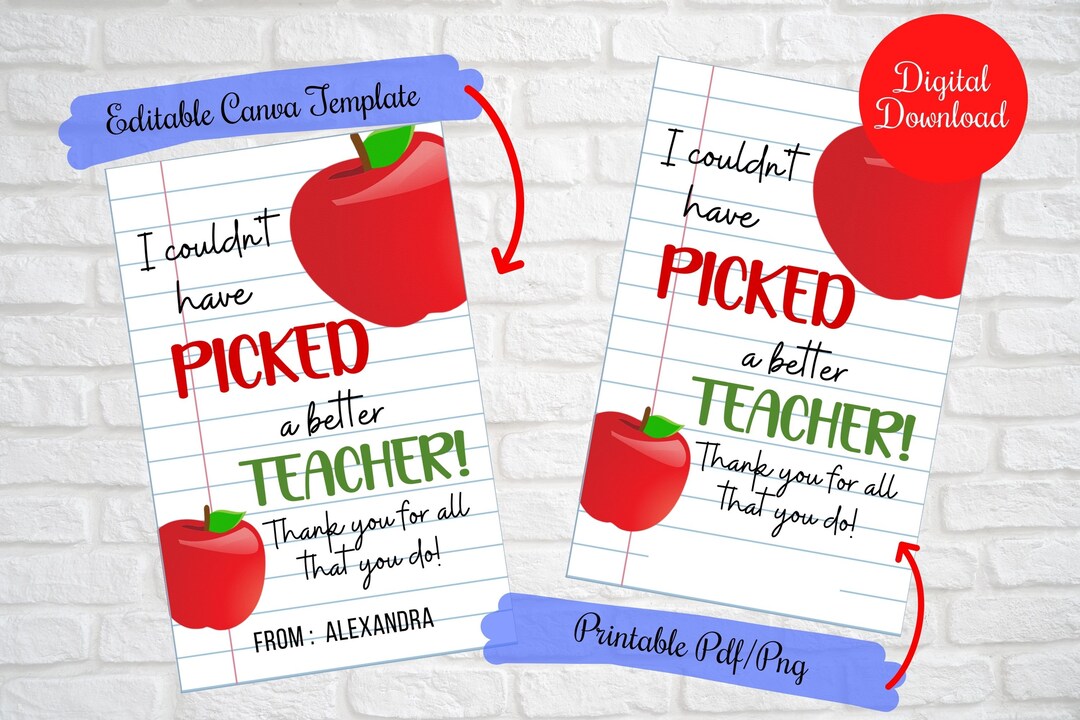 Editable Canva Template
I couldn't
have
PICKED
a better
TEACHER!
Thank you for all
that you do!
FROM : ALEXANDRA
Digital
Download
I couldn't
have
PICKED
a better
TEACHER!
Thank you for all
that you do!
Printable Pdf/Png